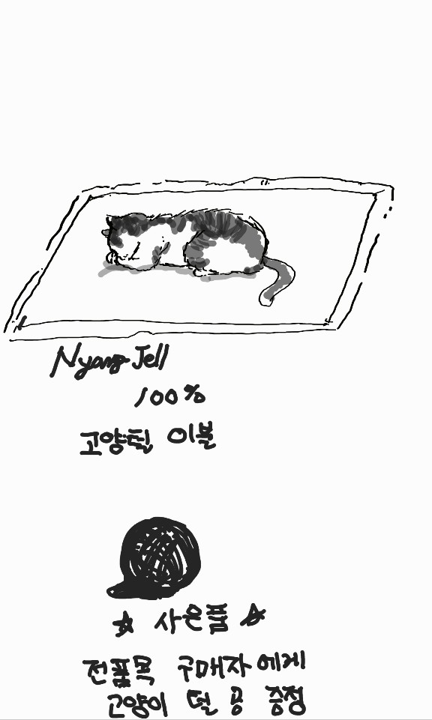 Nyang Jell
100%
고양털 이불
☆ 사은품 ☆
전품목 구매자에게
고양이 털 공 증정